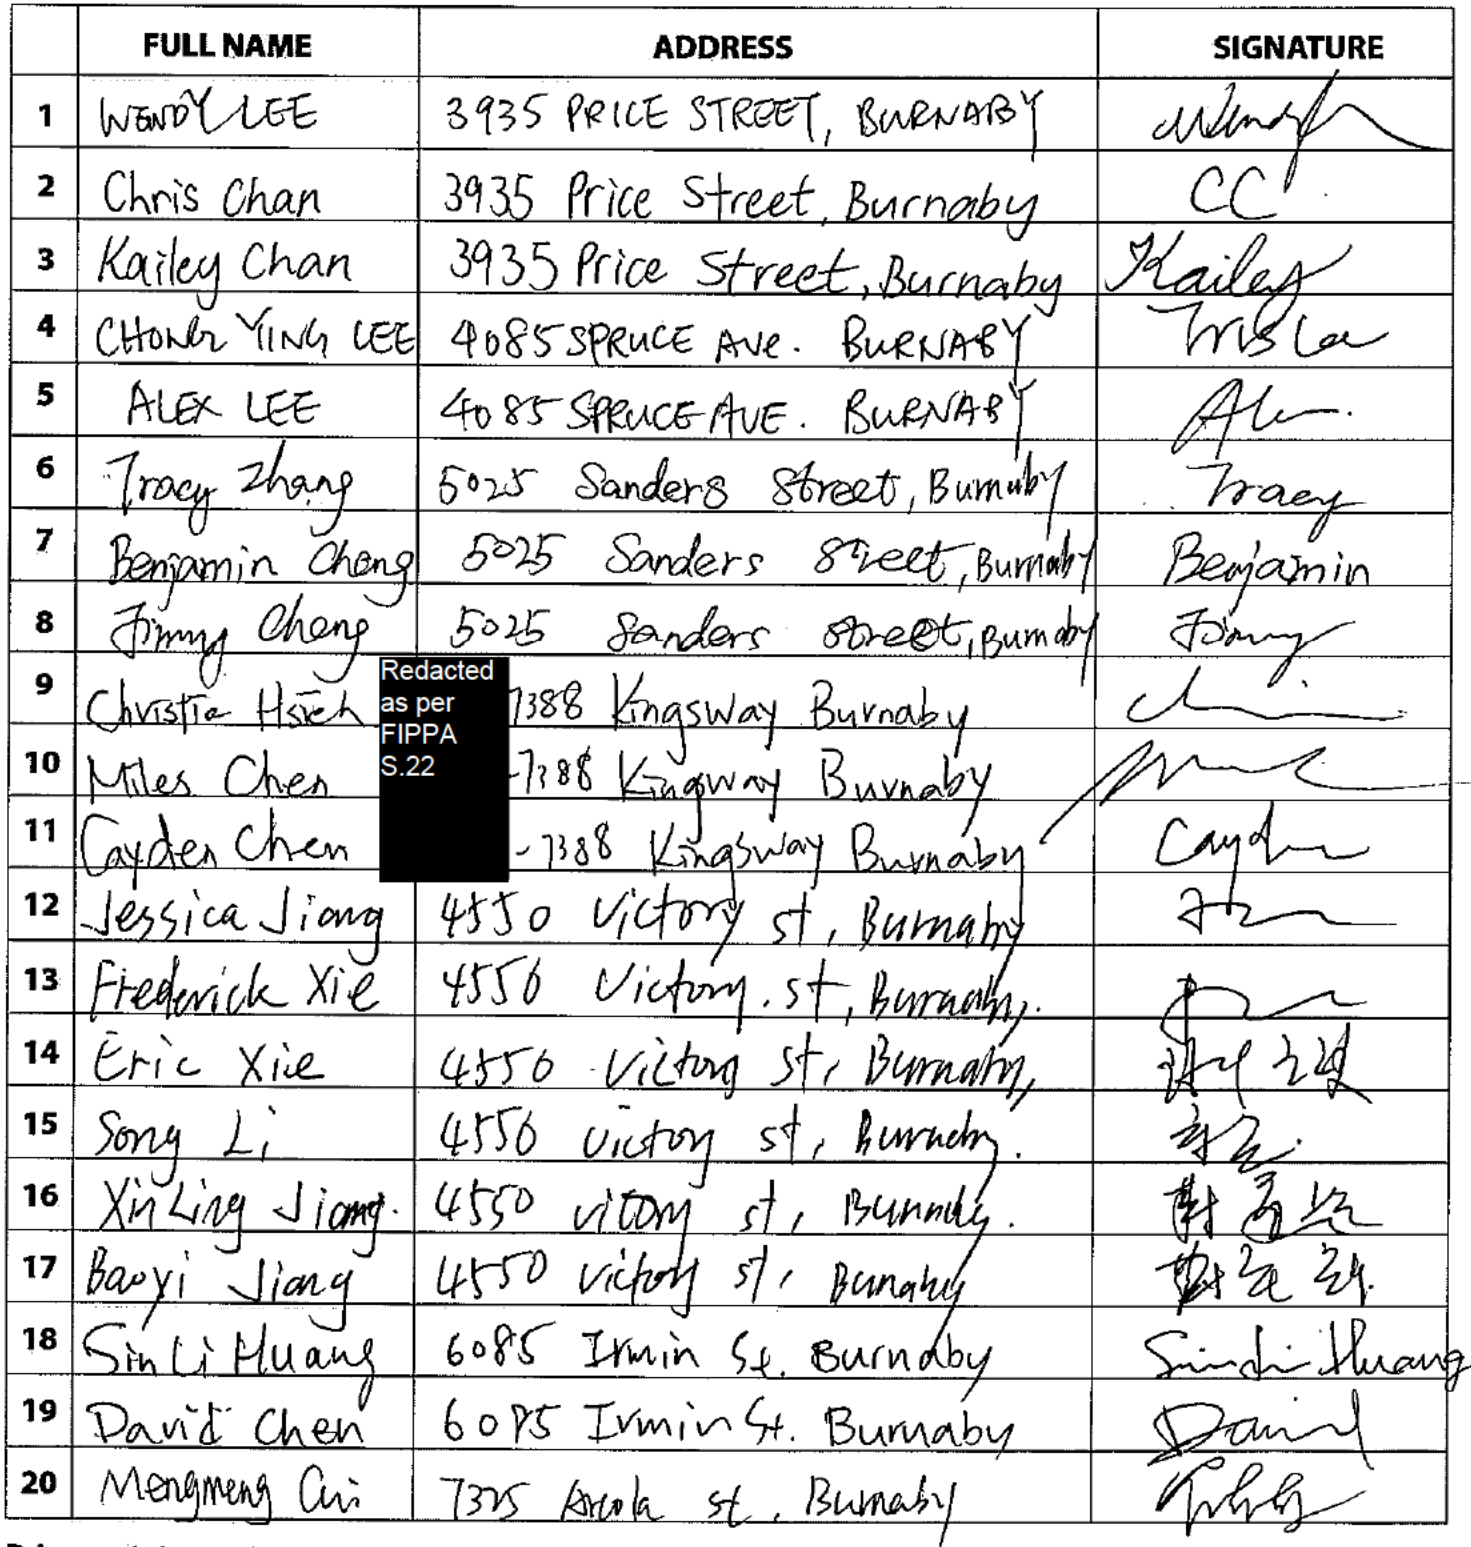 FULL NAME ADDRESS SIGNATURE
1 WENDY LEE 3935 PRICE STREET, BURNABY Wendy
2 Chris Chan 3935 Price Street, Burnaby CC
3 Kailey Chan 3935 Price Street, Burnaby Kailey
4 CHONG YING LEE 4085 SPRUCE AVE. BURNABY
5 ALEX LEE 4085 SPRUCE AVE. BURNABY
6 Tracy Zhang 5025 Sanders Street, Burnaby Tracy
7 Benjamin Cheng 5025 Sanders Street, Burnaby Benjamin
8 Jimmy Cheng 5025 Sanders Street, Burnaby Jimmy
Redacted
as per
FIPPA
S.22
9 Christie Hsieh 7388 Kingsway Burnaby
10 Miles Chen -7388 Kingsway Burnaby
11 Cayden Chen -7388 Kingsway Burnaby Cayden
12 Jessica Jiang 4550 Victory st, Burnaby
13 Frederick Xie 4550 Victory. st, Burnaby,.
14 Eric Xie 4550 Victory st, Burnaby,
15 Song Li 4550 Victory st, Burnaby.
16 XinLing Jiang. 4550 vitory st, Burnaby.
17 Baoyi Jiang 4550 Victory st, Burnaby
18 Sin Li Huang 6085 Irmin St. Burnaby Sin Li Huang
19 David Chen 6085 Irmin St. Burnaby David
20 Mengmeng Cui 7325 Arcola st, Burnaby